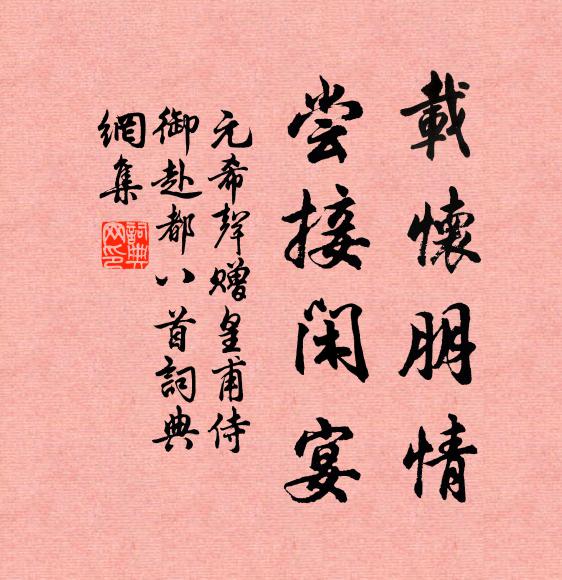 載懷朋情
尝接闲宴
元希聲贈皇甫侍
御赴都八首詞典
網集
詞典
网印